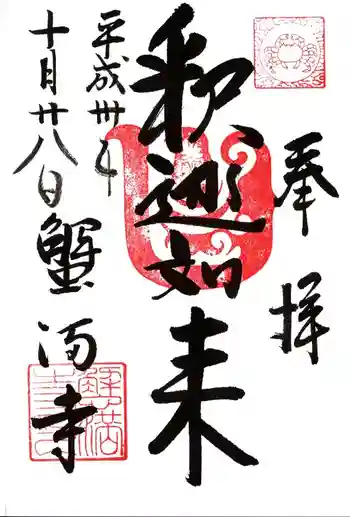 奉拝
釈迦如来
平成卅年
十月廿八日 蟹満寺
蟹満寺